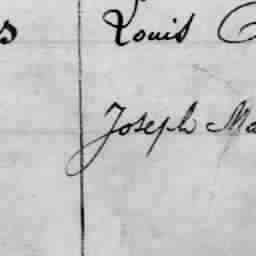 s Louis
Joseph Ma